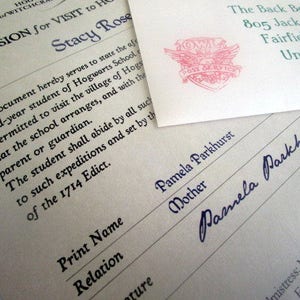 SION for VISIT to HO
Stacy Rose
ocument hereby serves to state the af
d-year student of Hogwarts School
ermitted to visit the village of Hogs
at the school arranges, and with the
parent or guardian.
The student shall abide by all suc
to such expeditions and set by th
of the 1714 Edict.
Print Name
Pamela Parkhurst
Relation
Mother
ature
Pamela Parkh
The Back Be
805 Jack
Fairfie
Un
OWL
POST OFFICE